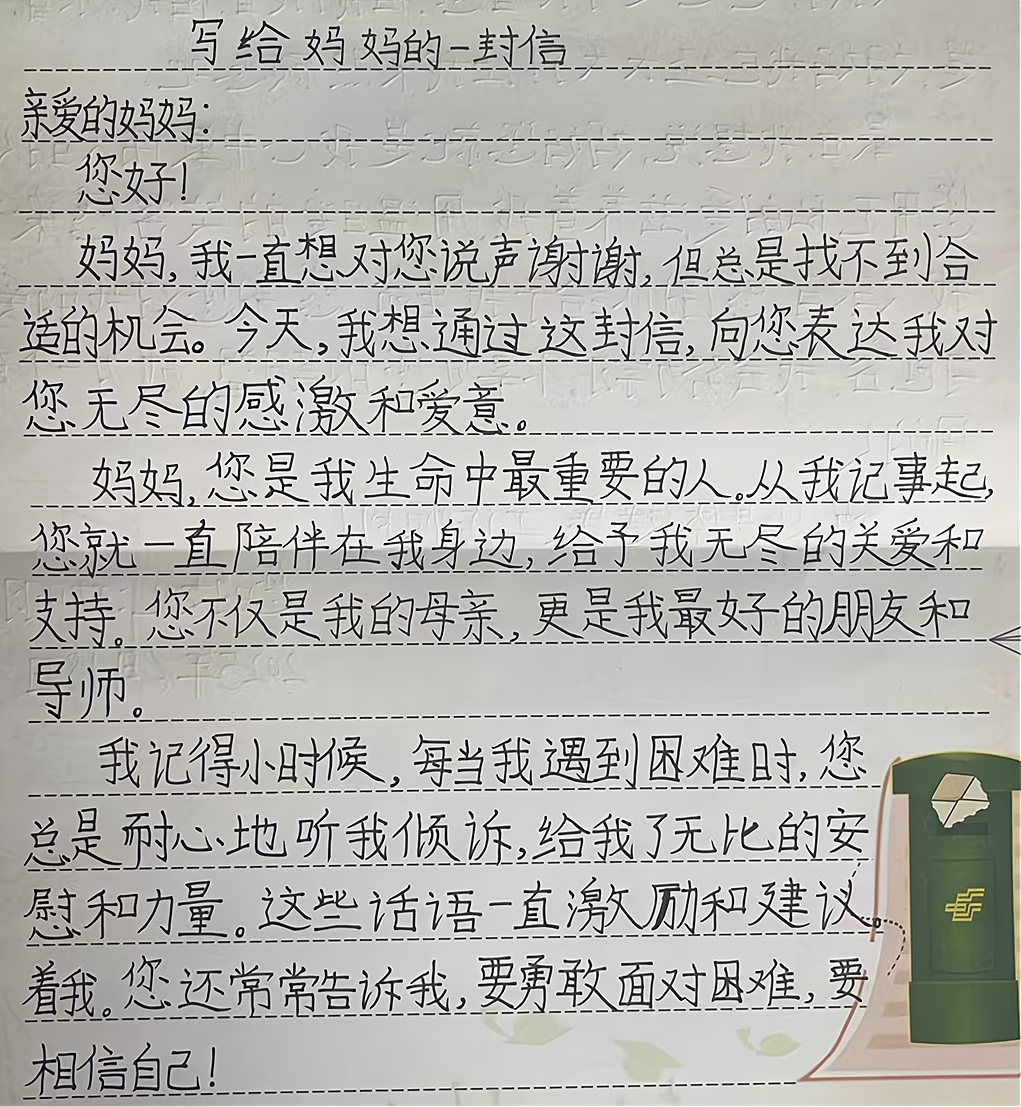 写给妈妈的一封信
亲爱的妈妈：
您好！
妈妈，我一直想对您说声谢谢，但总是找不到合
适的机会。今天，我想通过这封信，向您表达我对
您无尽的感激和爱意。
妈妈，您是我生命中最重要的人。从我记事起，
您就一直陪伴在我身边，给予我无尽的关爱和
支持。您不仅是我的母亲，更是我最好的朋友和
导师。
我记得小时候，每当我遇到困难时，您
总是耐心地听我倾诉，给我了无比的安
慰和力量。这些话语一直激励和建议
着我。您还常常告诉我，要勇敢面对困难，要
相信自己！